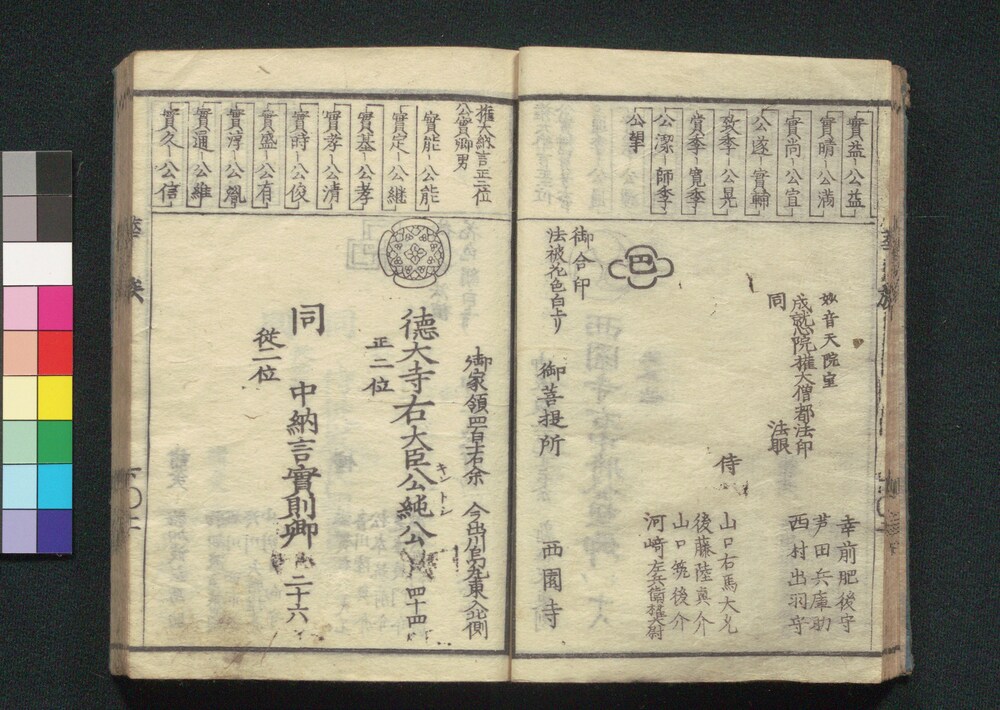 實益 公益
實晴 公満
實尚 公宜
公遂 實輔
致季 公晃
賞季 寛季
公潔 師季
公望
妙音天院室
成就院権大僧都法印
同 法眼
幸前肥後守
芦田兵庫助
西村出羽守
侍
山口右馬大允
後藤陸奥介
山口筑後介
河﨑左兵衛権大尉
巴
御合印
法被花色白上リ
御菩提所 西園寺
権大納言正二位
公實卿男
實能 公能
實定 公継
實基 公孝
實孝 公清
實時 公俊
實盛 公有
實淳 公胤
實通 公維
實久 公信
御家領四百十石余 今出川烏丸東入北側
徳大寺右大臣公純公 四十四
キントシ
正二位
同 中納言實則卿 二十六
従二位
華族